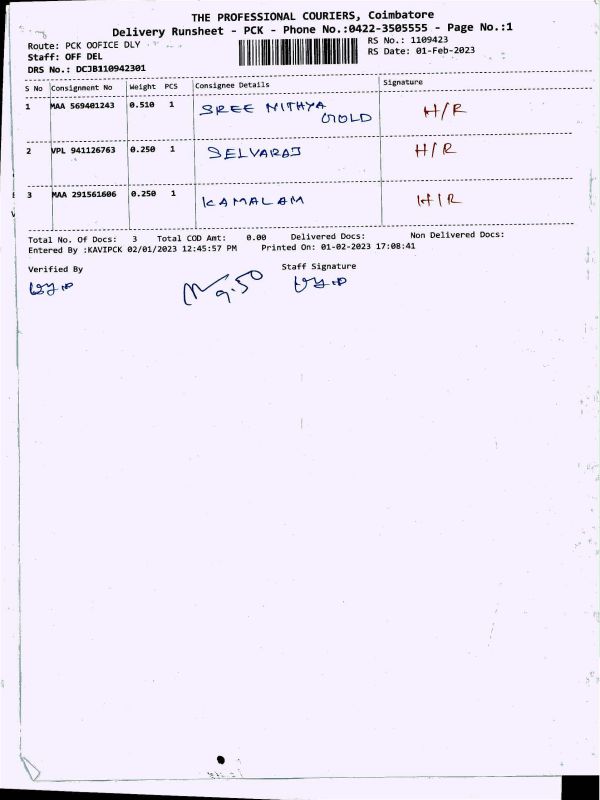 THE PROFESSIONAL COURIERS, Coimbatore
Delivery Runsheet - PCK - Phone No.:0422-3505555 - Page No.:1
Route: PCK OOFICE DLY
RS No.: 1109423
Staff: OFF DEL
RS Date: 01-Feb-2023
DRS No.: DCJB110942301
S No Consignment No Weight PCS Consignee Details Signature
1 MAA 569401243 0.510 1 SREE NITHYA GOLD H/R
2 VPL 941126763 0.250 1 SELVARAJ H/R
3 MAA 291561606 0.250 1 KAMALAM H/R
Total No. Of Docs: 3 Total COD Amt: 0.00 Delivered Docs: Non Delivered Docs:
Entered By :KAVIPCK 02/01/2023 12:45:57 PM Printed On: 01-02-2023 17:08:41
Verified By Staff Signature
9.50